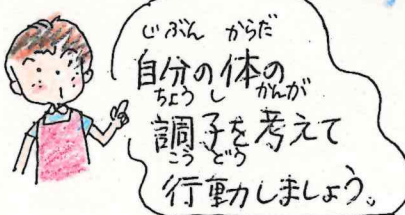 じぶん からだ
自分の体の
ちょうし かんが
調子を考えて
こうどう
行動しましょう。